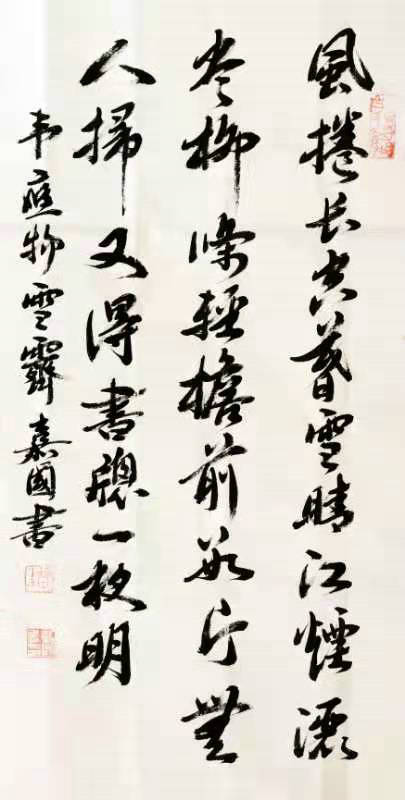 風捲長空暮雪晴江煙灑
尽柳條輕檐前數片無
人掃又得書窗一夜明
韦應物雪霽嘉國書